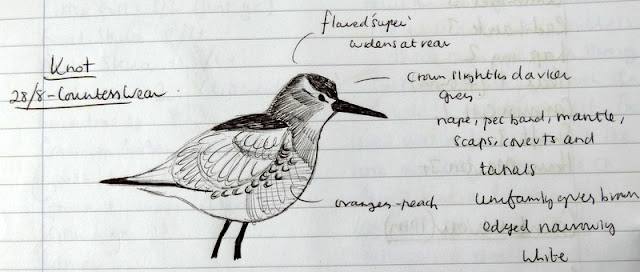 flared 'super'
widens at rear
Knot
28/8 - Countess Wear
Crown slightly darker
grey.
nape, pec band, mantle,
scaps, coverts and
tertials
uniformly grey brown
edged narrowly
white
orangey-peach